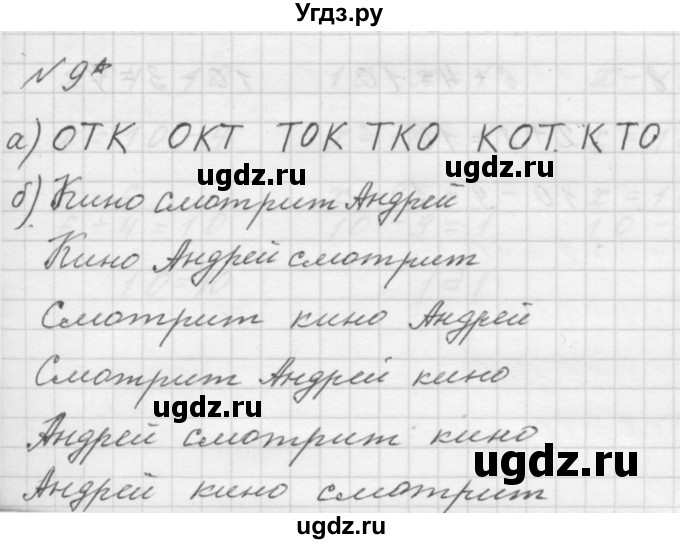 Угдз.ру
№ 9*
а) ОТК ОКТ ТОК ТКО КОТ КТО
ugdz.ru ugdz.ru
б) Кино смотрит Андрей
Кино Андрей смотрит
Смотрит кино Андрей
Смотрит Андрей кино
ugdz.ru
Андрей смотрит кино
ugdz.ru
Андрей кино смотрит
ugdz.ru